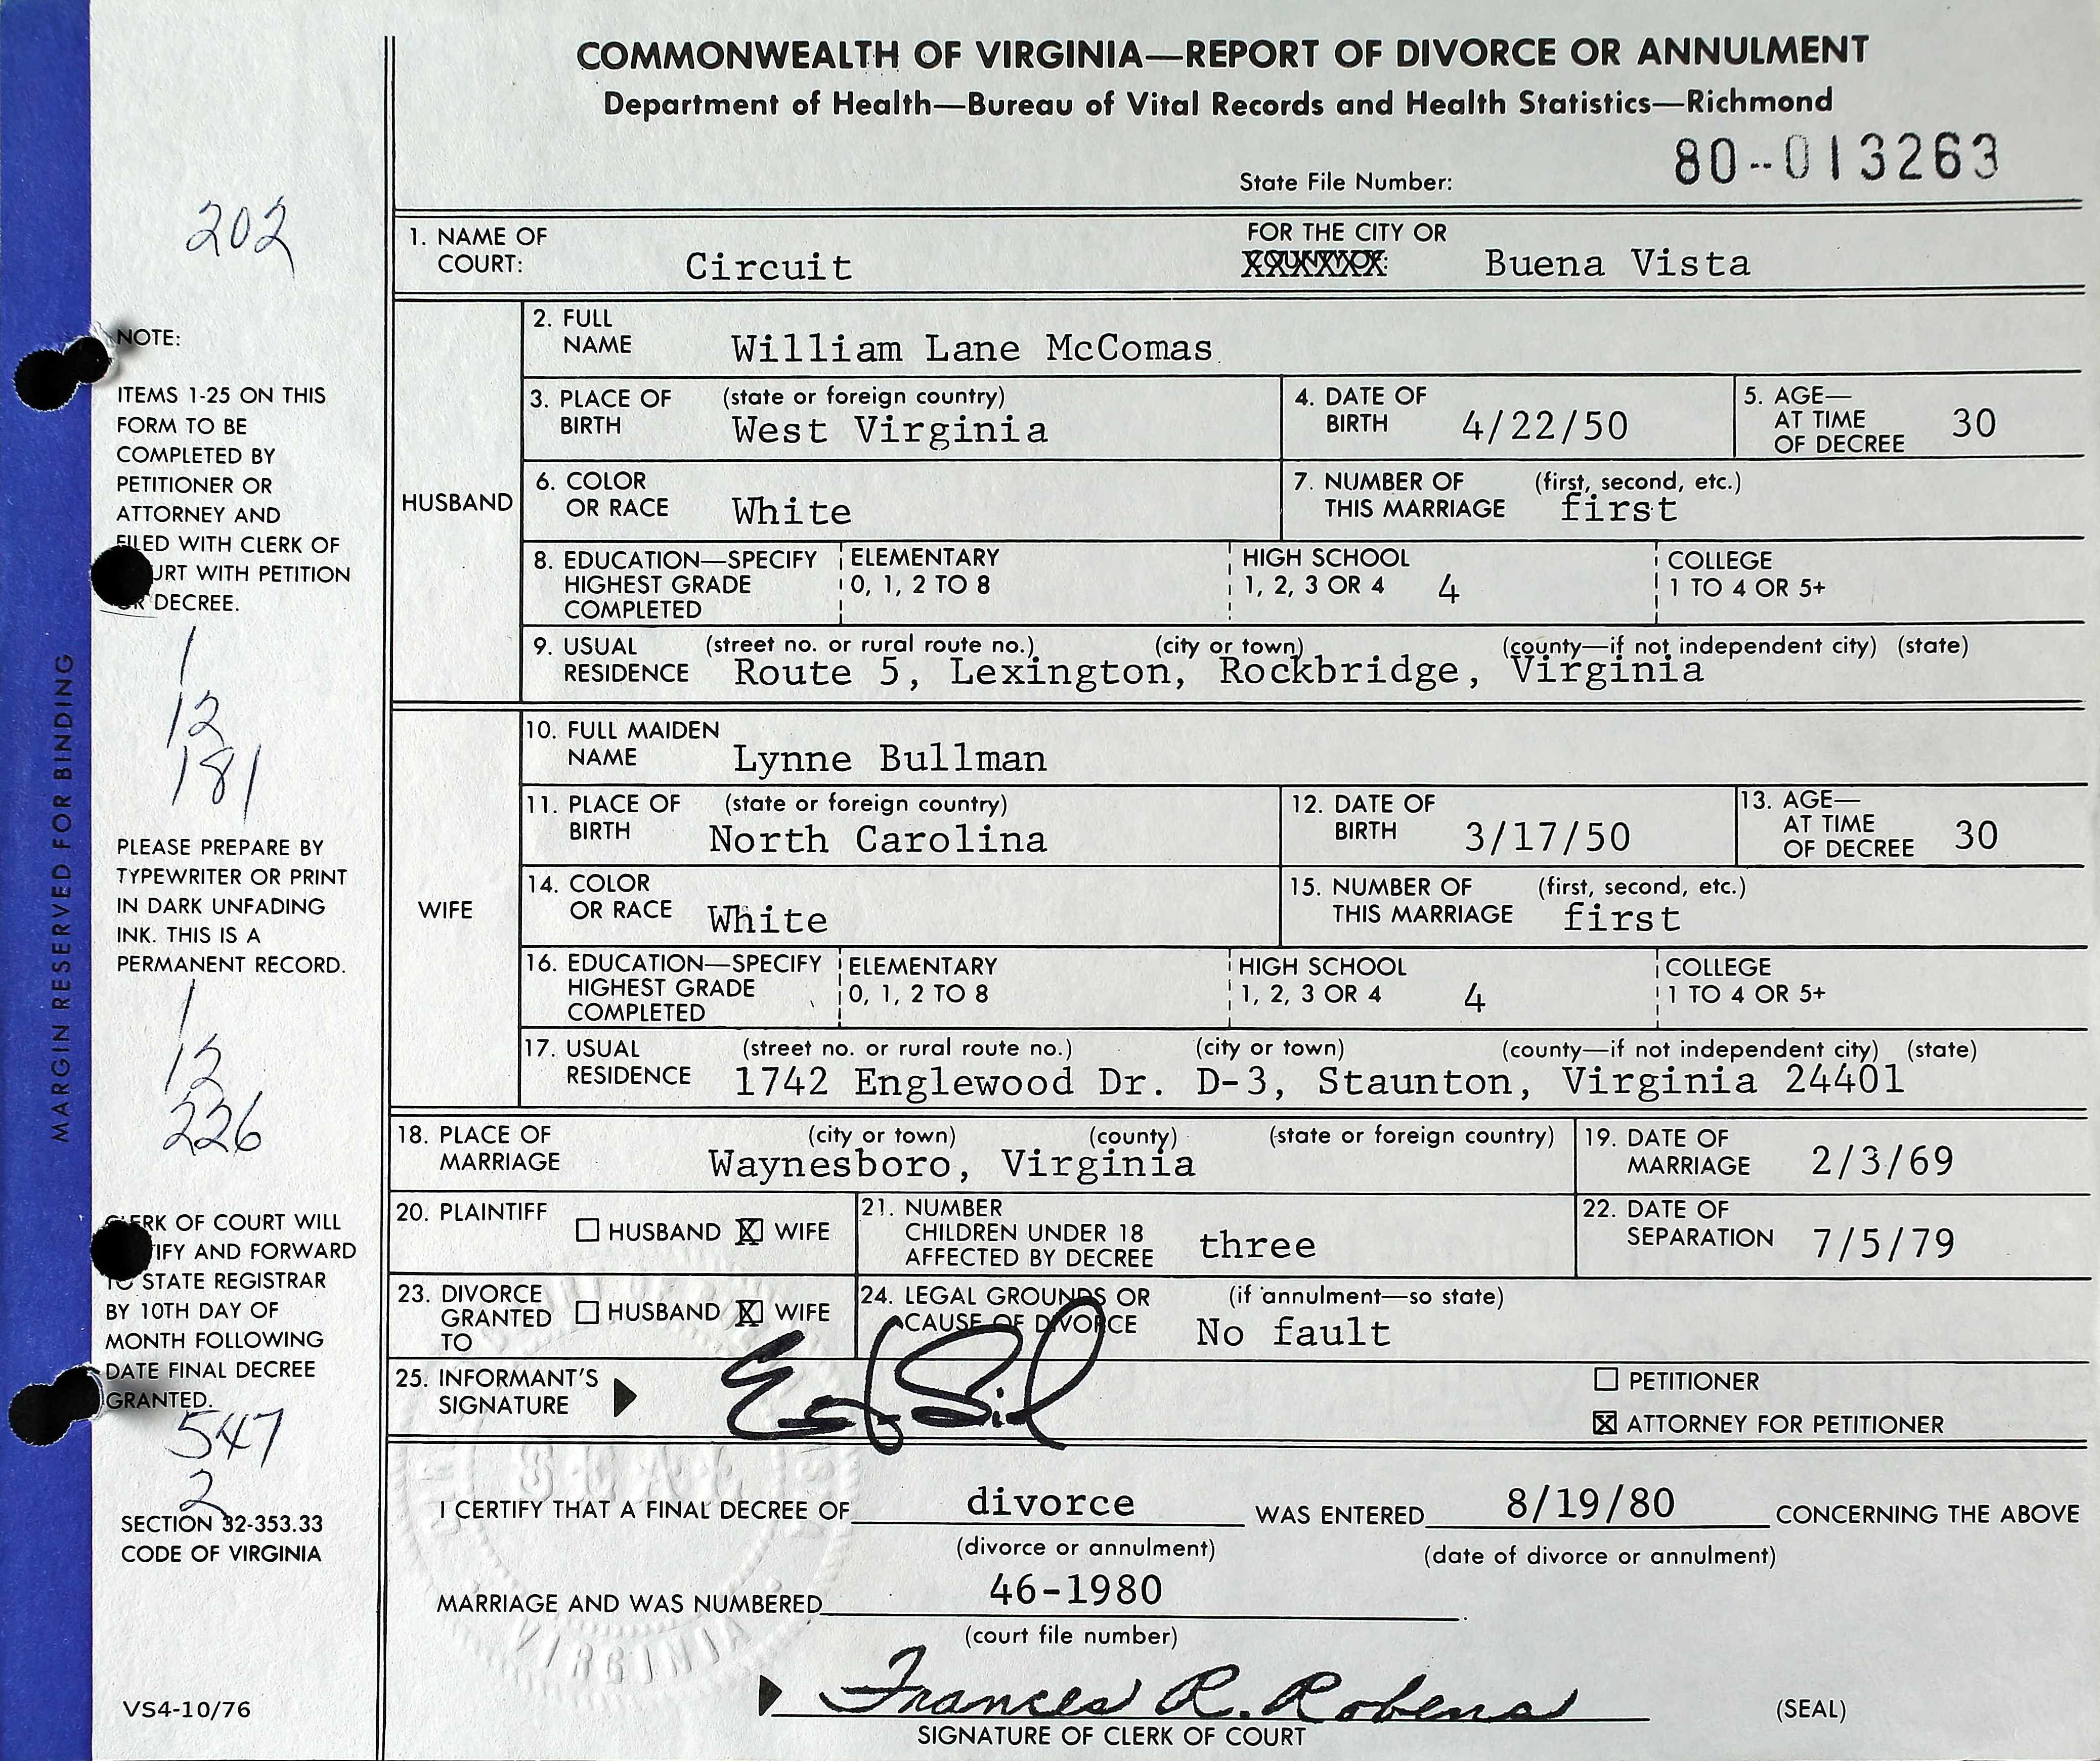 COMMONWEALTH OF VIRGINIA—REPORT OF DIVORCE OR ANNULMENT
Department of Health—Bureau of Vital Records and Health Statistics—Richmond
State File Number: 80--013263
202
NOTE:
ITEMS 1-25 ON THIS
FORM TO BE
COMPLETED BY
PETITIONER OR
ATTORNEY AND
FILED WITH CLERK OF
URT WITH PETITION
OR DECREE.
1
12
181
PLEASE PREPARE BY
TYPEWRITER OR PRINT
IN DARK UNFADING
INK. THIS IS A
PERMANENT RECORD.
1
12
226
CLERK OF COURT WILL
IFY AND FORWARD
TO STATE REGISTRAR
BY 10TH DAY OF
MONTH FOLLOWING
DATE FINAL DECREE
GRANTED.
547
2
SECTION 32-353.33
CODE OF VIRGINIA
VS4-10/76
MARGIN RESERVED FOR BINDING
1. NAME OF COURT: Circuit
FOR THE CITY OR Buena Vista
HUSBAND
2. FULL NAME William Lane McComas
3. PLACE OF BIRTH (state or foreign country) West Virginia
4. DATE OF BIRTH 4/22/50
5. AGE— AT TIME OF DECREE 30
6. COLOR OR RACE White
7. NUMBER OF THIS MARRIAGE (first, second, etc.) first
8. EDUCATION—SPECIFY HIGHEST GRADE COMPLETED
ELEMENTARY 0, 1, 2 TO 8
HIGH SCHOOL 1, 2, 3 OR 4 4
COLLEGE 1 TO 4 OR 5+
9. USUAL RESIDENCE (street no. or rural route no.) (city or town) (county—if not independent city) (state)
Route 5, Lexington, Rockbridge, Virginia
WIFE
10. FULL MAIDEN NAME Lynne Bullman
11. PLACE OF BIRTH (state or foreign country) North Carolina
12. DATE OF BIRTH 3/17/50
13. AGE— AT TIME OF DECREE 30
14. COLOR OR RACE White
15. NUMBER OF THIS MARRIAGE (first, second, etc.) first
16. EDUCATION—SPECIFY HIGHEST GRADE COMPLETED
ELEMENTARY 0, 1, 2 TO 8
HIGH SCHOOL 1, 2, 3 OR 4 4
COLLEGE 1 TO 4 OR 5+
17. USUAL RESIDENCE (street no. or rural route no.) (city or town) (county—if not independent city) (state)
1742 Englewood Dr. D-3, Staunton, Virginia 24401
18. PLACE OF MARRIAGE (city or town) (county) (state or foreign country)
Waynesboro, Virginia
19. DATE OF MARRIAGE 2/3/69
20. PLAINTIFF ☐ HUSBAND ☒ WIFE
21. NUMBER CHILDREN UNDER 18 AFFECTED BY DECREE three
22. DATE OF SEPARATION 7/5/79
23. DIVORCE GRANTED TO ☐ HUSBAND ☒ WIFE
24. LEGAL GROUNDS OR CAUSE OF DIVORCE (if annulment—so state) No fault
25. INFORMANT'S SIGNATURE
☐ PETITIONER
☒ ATTORNEY FOR PETITIONER
I CERTIFY THAT A FINAL DECREE OF divorce WAS ENTERED 8/19/80 CONCERNING THE ABOVE
(divorce or annulment) (date of divorce or annulment)
MARRIAGE AND WAS NUMBERED 46-1980
(court file number)
VIRGINIA
Frances R. Robens
SIGNATURE OF CLERK OF COURT
(SEAL)